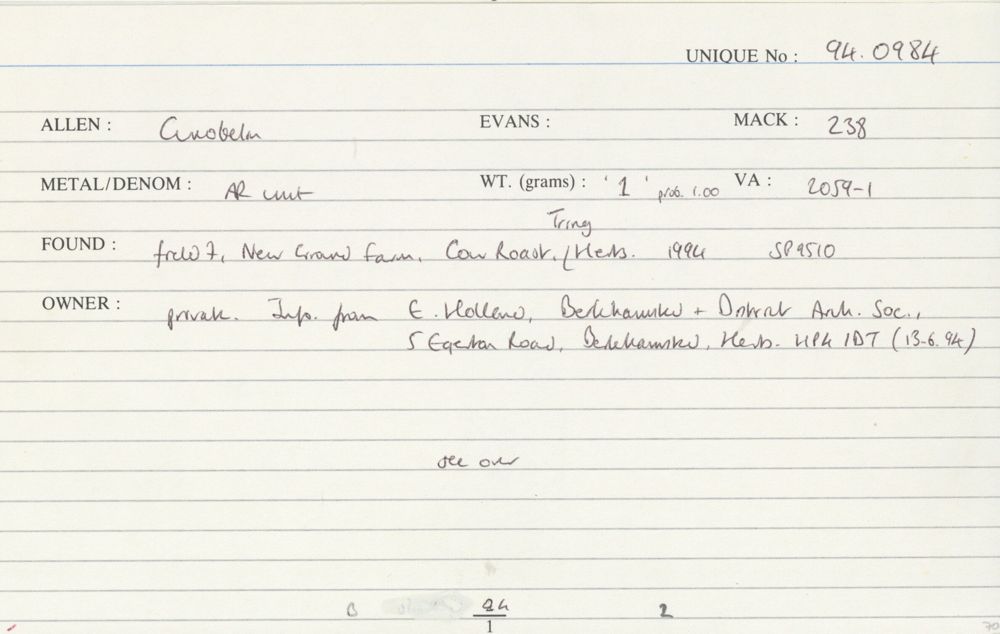 UNIQUE No : 94.0984
ALLEN : Cunobelin EVANS : MACK : 238
METAL/DENOM : AR unit WT. (grams) : '1' prob. 1.00 VA : 2059-1
Tring
FOUND : field 7, New Ground Farm, Cow Roast, / Herts. 1994 SP9510
OWNER : private. Info. from E. Holland, Berkhamsted + District Arch. Soc.,
5 Egerton Road, Berkhamsted, Herts. HP4 1DT (13-6.94)
see over
B 94 2
1
70